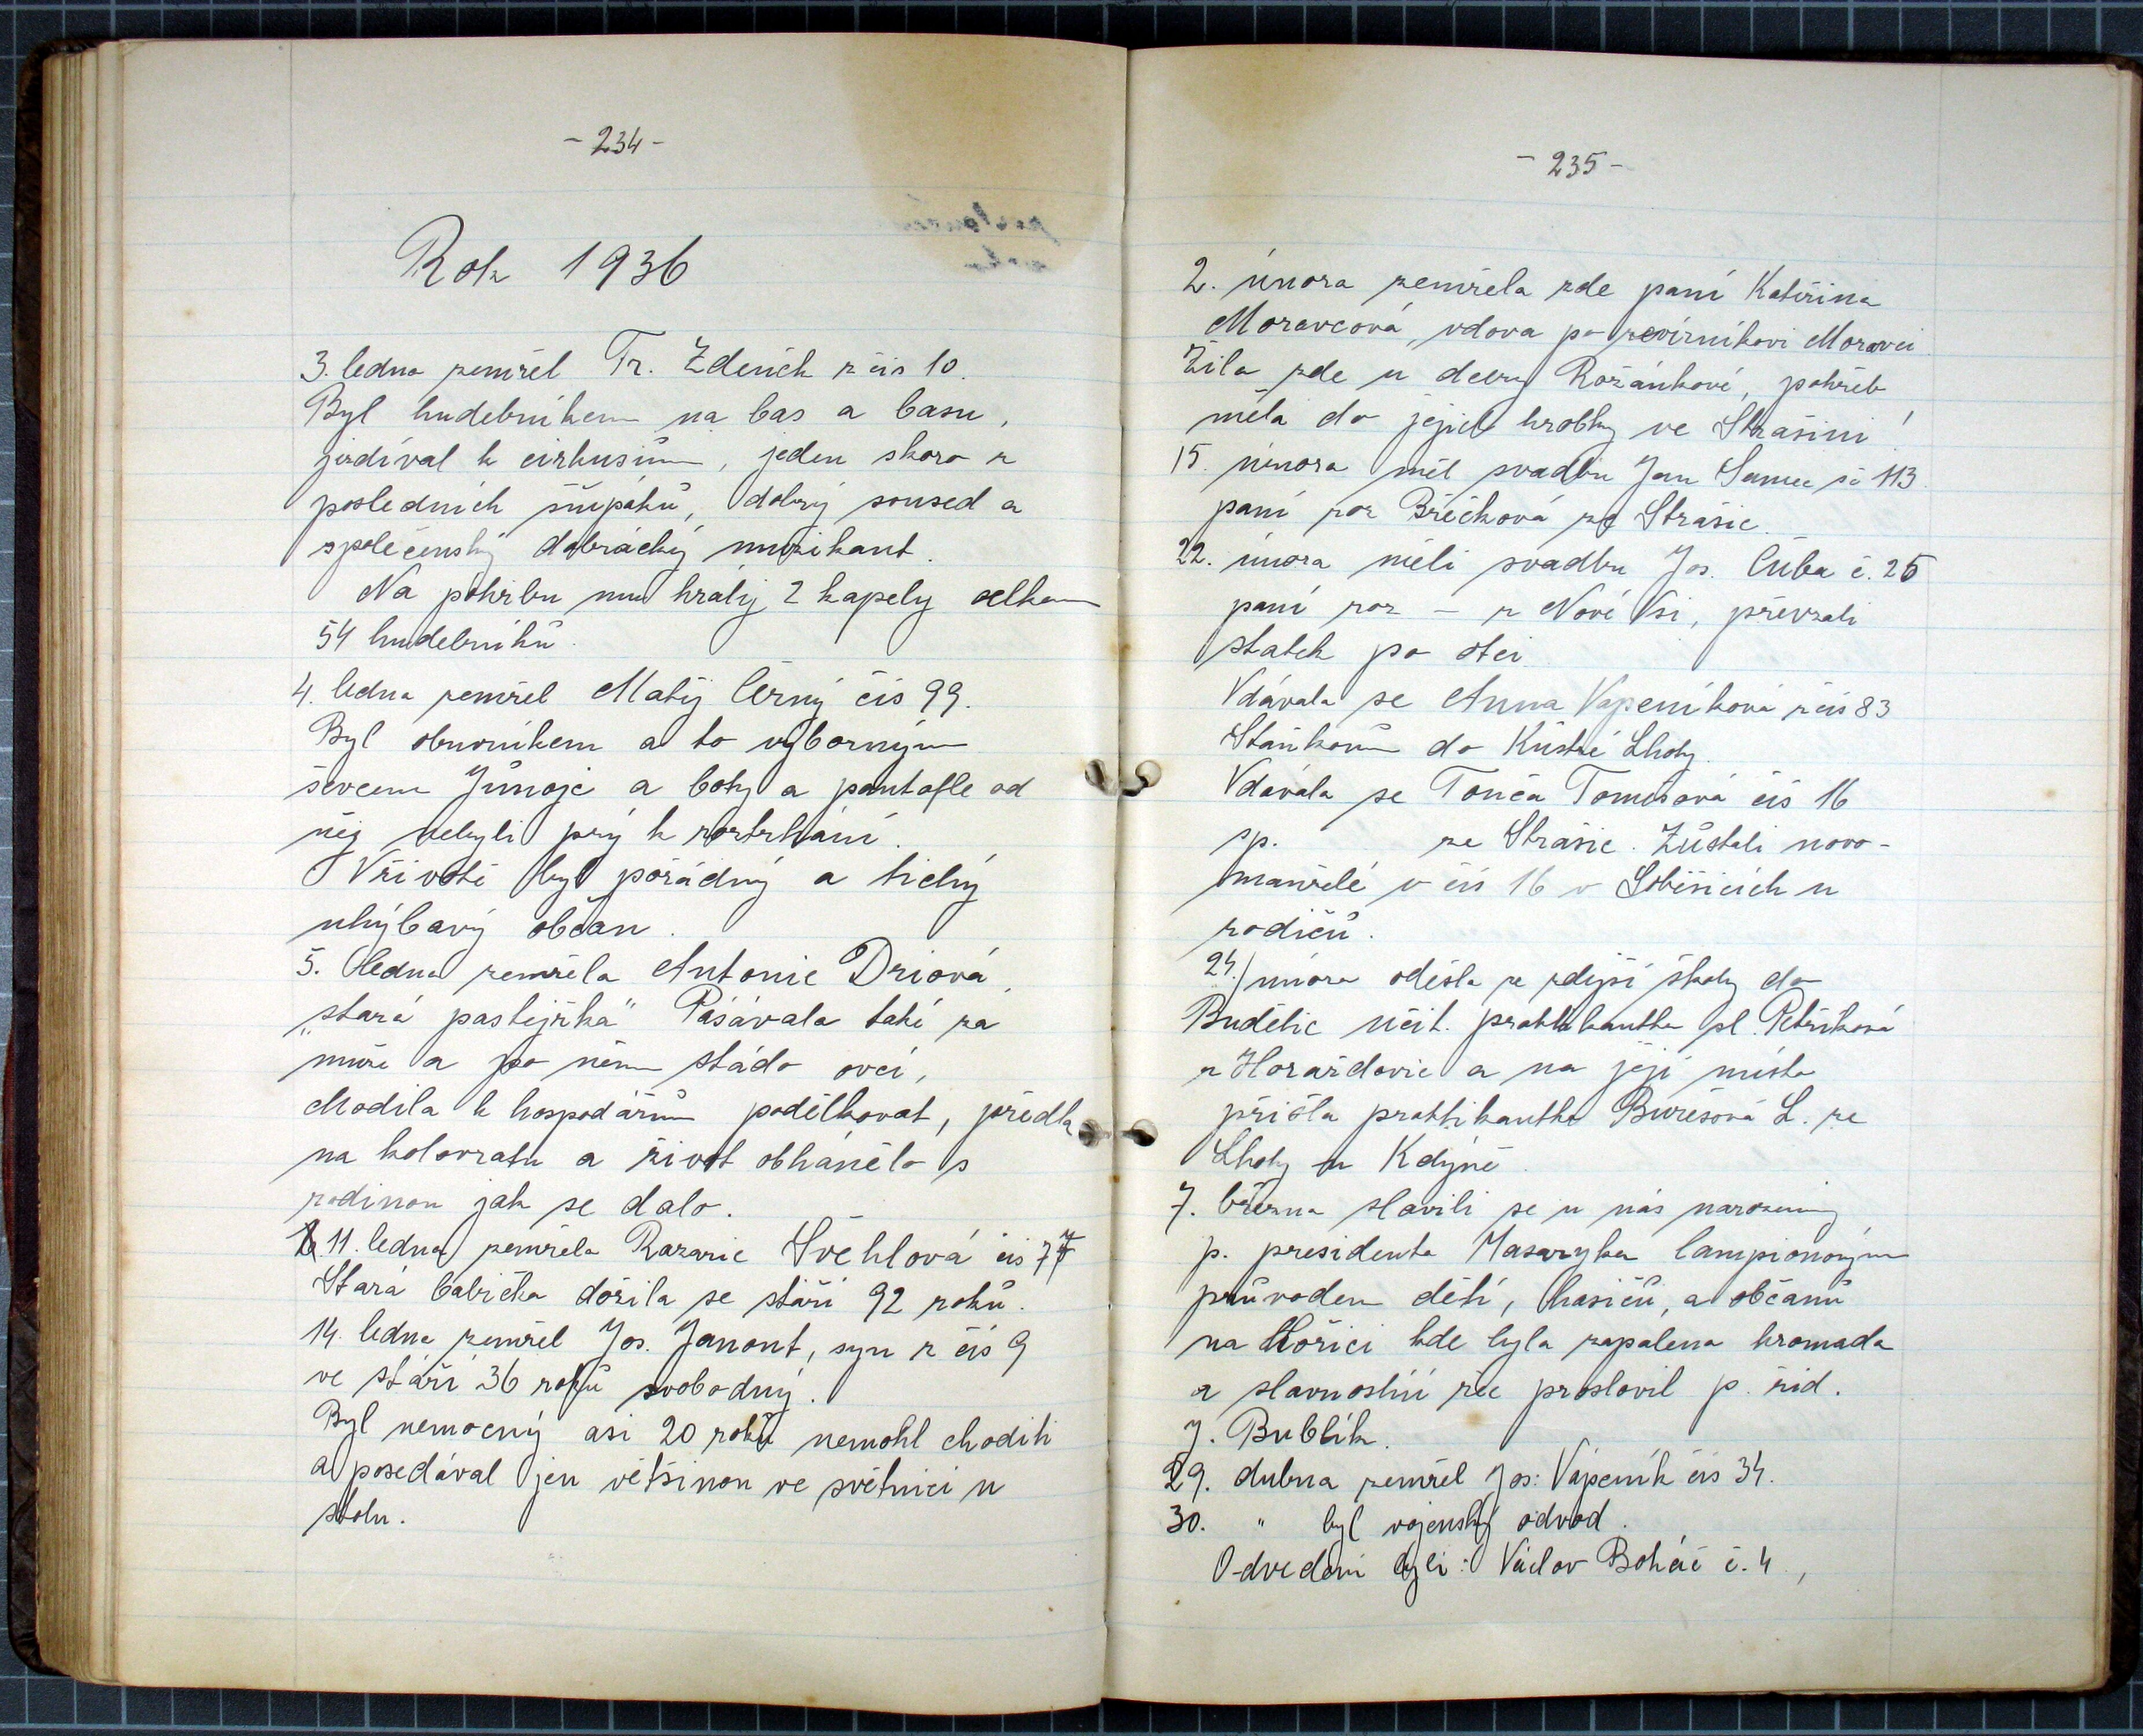 - 234 -
Rok 1936
3. ledna zemřel Fr. Zdeněk z čís 10.
Byl hudebníkem na bas a basu,
jezdíval k cirkusům, jeden skoro z
posledních šupáků, dobrý soused a
společenský dobrácký muzikant.
Na pohřbu mu hrály 2 kapely celkem
54 hudebníků.
4. ledna zemřel Matěj Černý čís 99.
Byl obuvníkem a to výborným
ševcem a boty a pantofle od
něj nebyli prý k roztrhání.
V životě byl pořádný a tichý
uhýbavý občan.
5. ledna zemřela Antonie Driová,
„stará pastejřka" Pásávala také za
muže a po něm stádo ovcí,
chodila k hospodářům podělkovat, předla
na kolovratu a život obháněla s
rodinou jak se dalo.
11. ledna zemřela Rozarie Švehlová čís 77
Stará babička dožila se stáří 92 roků.
14. ledna zemřel Jos. Janout, syn z čís 9
ve stáří 36 roků svobodný.
Byl nemocný asi 20 roků nemohl choditi
a posedával jen většinou ve světnici u
stolu.
- 235 -
2. února zemřela zde paní Kateřina
Moravcová, vdova po revírníkovi Moravci
Žila zde u dcery Rožánkové, pohřeb
měla do jejich hrobky ve Strašíni
15. února měl svadbu Jan Samec čč 113.
paní roz Bříčková ze Strašic.
22. února měli svadbu Jos. Čuba č. 25
paní roz – z Nové Vsi, převzali
statek po otci
Vdávala se Anna Vápeníková z čís 83
Staňkovům do Lhoty.
Vdávala se Tonča Tomešová čís 16
sp. ze Strašic. Zůstali novo-
manželé v čís 16 v Soběšicích u
rodičů.
24./ února odešla ze zdejší školy do
Budětic učit. praktikantka sl. Petříková
z Horažďovic a na její místo
přišla praktikantka Burešová L. ze
Lhoty u Kdyně.
7. března slavili se u nás narozeniny
p. presidenta Masaryka lampionovým
průvodem dětí, hasičů, a občanů
na Hořici kde byla zapálena hromada
a slavnostní řeč proslovil p. řid.
J. Bublík.
29. dubna zemřel Jos. Vápeník čís 34.
30. " byl vojenský odvod.
Odvedeni byli: Václav Boháč č. 4,